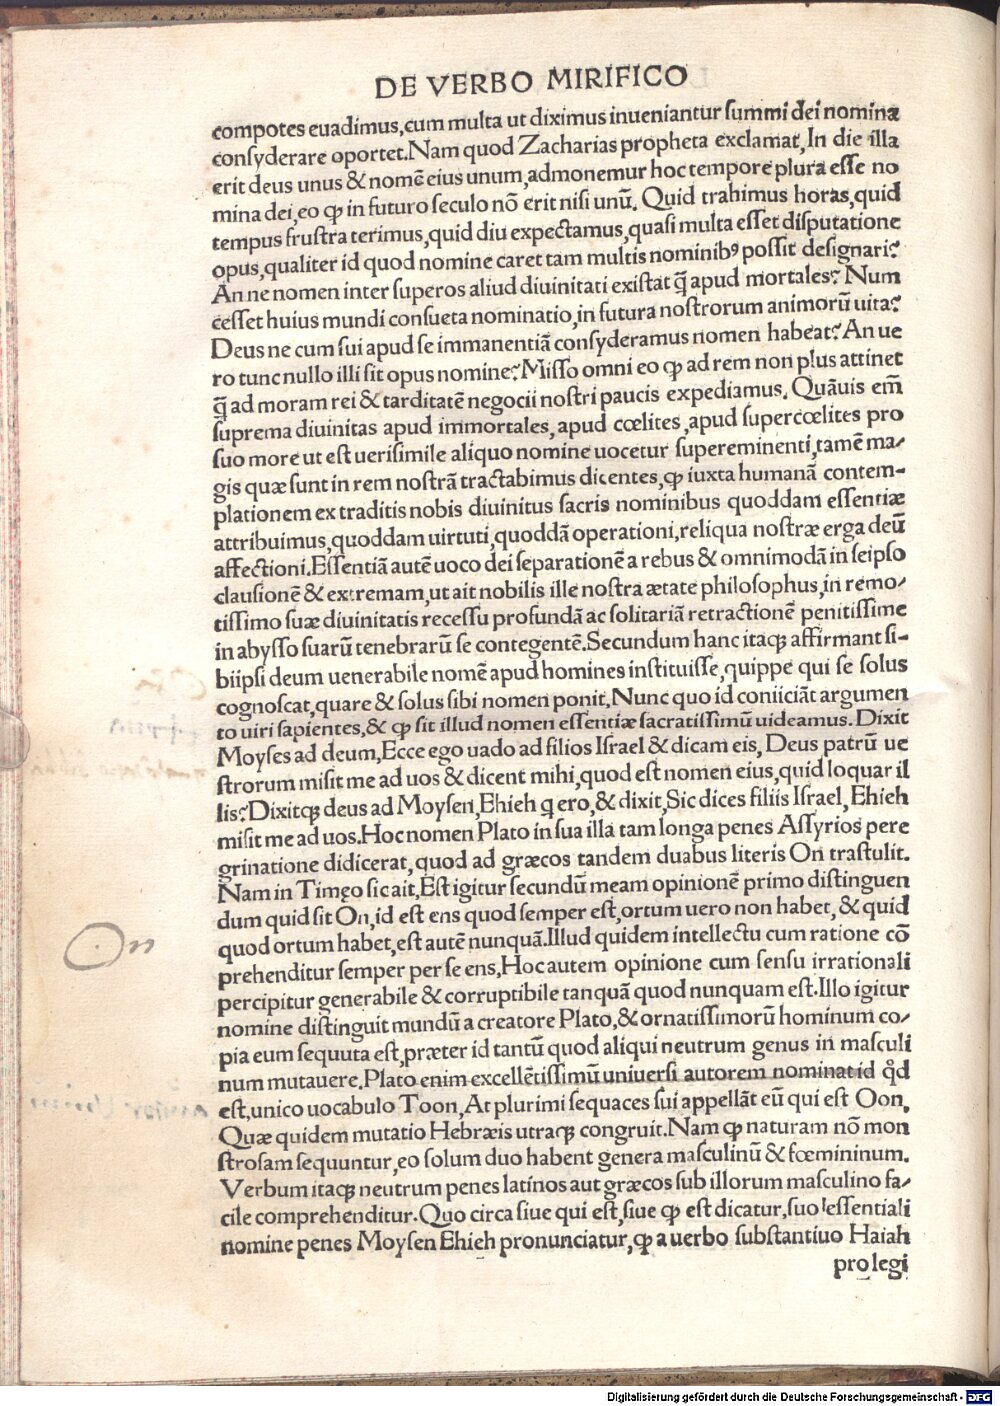 DE VERBO MIRIFICO
compotes euadimus,cum multa ut diximus inueniantur summi dei nomina
consyderare oportet.Nam quod Zacharias propheta exclamat,In die illa
erit deus unus & nomē eius unum,admonemur hoc tempore plura esse no
mina dei,eo ꝙ in futuro seculo nō erit nisi unū. Quid trahimus horas,quid
tempus frustra terimus,quid diu expectamus,quasi multa esset disputatione
opus,qualiter id quod nomine caret tam multis nominibꝰ possit designari?
An ne nomen inter superos aliud diuinitati existat q̃ apud mortales? Num
cesset huius mundi consueta nominatio,in futura nostrorum animorū uita?
Deus ne cum sui apud se immanentiā consyderamus nomen habeat? An ue
ro tunc nullo illi sit opus nomine? Misso omni eo ꝙ ad rem non plus attinet
q̃ ad moram rei & tarditatē negocii nostri paucis expediamus. Quāuis em̄
suprema diuinitas apud immortales,apud cœlites,apud supercœlites pro
suo more ut est uerisimile aliquo nomine uocetur supereminenti,tamē ma-
gis quæ sunt in rem nostrā tractabimus dicentes,ꝙ iuxta humanā contem-
plationem ex traditis nobis diuinitus sacris nominibus quoddam essentiæ
attribuimus,quoddam uirtuti,quoddā operationi,reliqua nostræ erga deū
affectioni.Essentiā autē uoco dei separationē a rebus & omnimodā in seipso
clausionē & extremam,ut ait nobilis ille nostra ætate philosophus,in remo-
tissimo suæ diuinitatis recessu profundā ac solitariā retractionē penitissime
in abysso suarū tenebrarū se contegentē.Secundum hanc itaqꝫ affirmant si-
biipsi deum uenerabile nomē apud homines instituisse,quippe qui se solus
cognoscat,quare & solus sibi nomen ponit.Nunc quo id coniiciāt argumen
to uiri sapientes,& ꝙ sit illud nomen essentiæ sacratissimū uideamus. Dixit
Moyses ad deum,Ecce ego uado ad filios Israel & dicam eis, Deus patrū ue
strorum misit me ad uos & dicent mihi,quod est nomen eius,quid loquar il
lis? Dixitqꝫ deus ad Moysen,Ehieh q ero,& dixit,Sic dices filiis Israel, Ehieh
misit me ad uos.Hoc nomen Plato in sua illa tam longa penes Assyrios pere
grinatione didicerat,quod ad græcos tandem duabus literis On trastulit.
Nam in Timęo sic ait,Est igitur secundū meam opinionē primo distinguen
dum quid sit On,id est ens quod semper est,ortum uero non habet, & quid
quod ortum habet,est autē nunquā.Illud quidem intellectu cum ratione cō
prehenditur semper per se ens,Hoc autem opinione cum sensu irrationali
percipitur generabile & corruptibile tanquā quod nunquam est.Illo igitur
nomine distinguit mundū a creatore Plato,& ornatissimorū hominum co-
pia eum sequuta est,præter id tantū quod aliqui neutrum genus in masculi
num mutauere.Plato enim excellētissimū uniuersi autorem nominatid qd̊
est,unico uocabulo Toon,At plurimi sequaces sui appellāt eū qui est Oon.
Quæ quidem mutatio Hebræis utraqꝫ congruit.Nam ꝙ naturam nō mon
strosam sequuntur,eo solum duo habent genera masculinū & fœmininum.
Verbum itaqꝫ neutrum penes latinos aut græcos sub illorum masculino fa-
cile comprehenditur.Quo circa siue qui est,siue ꝙ est dicatur,suo essentiali
nomine penes Moysen Ehieh pronunciatur,ꝙ a uerbo substantiuo Haiah
pro legi
On
Digitalisierung gefördert durch die Deutsche Forschungsgemeinschaft - DFG